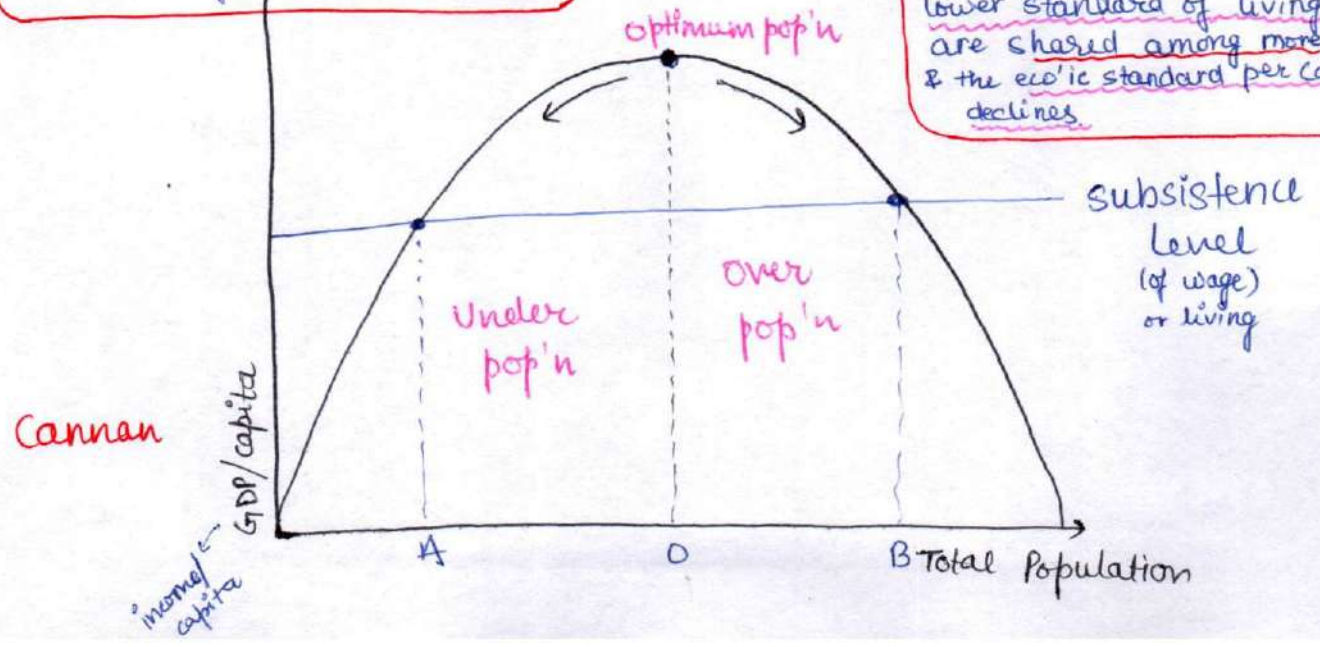 optimum pop'n
lower standard of living
are shared among more
& the eco'ic standard per
declines
subsistence
level
(of wage)
or living
Under
pop'n
over
pop'n
Cannan
GDP/capita
income/
capita
A
O
B
Total Population